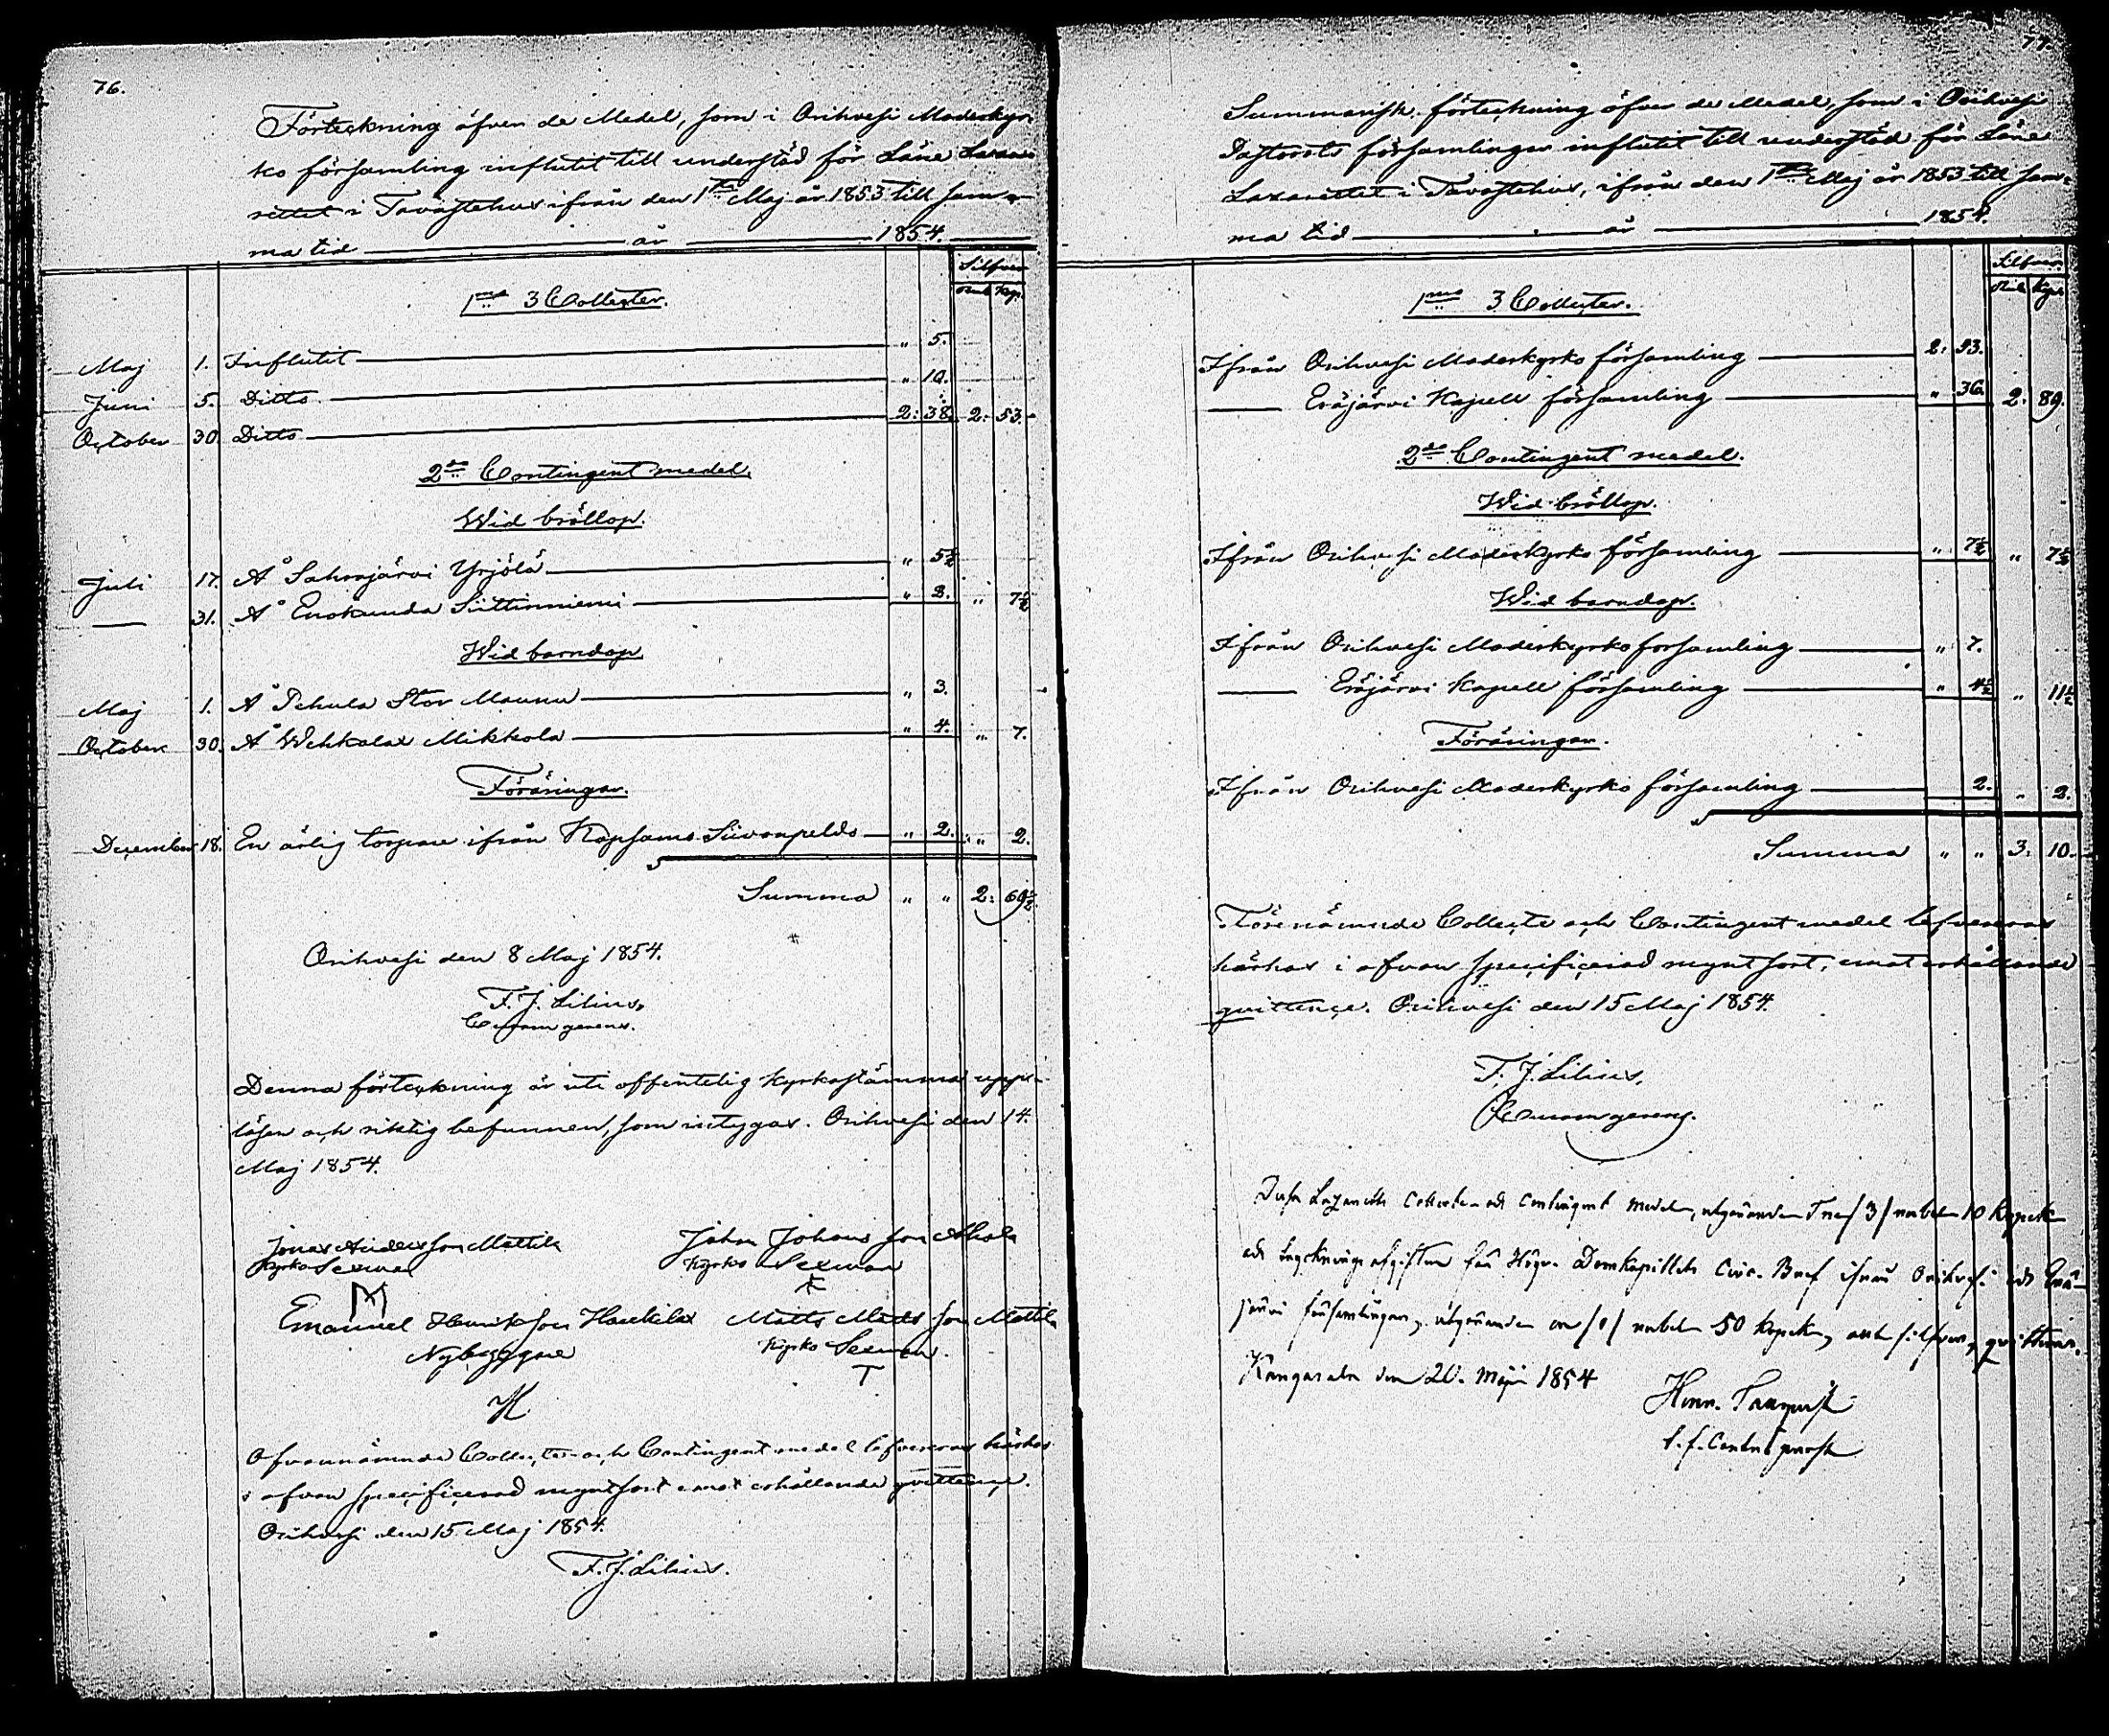 76.
Förteckning öfver de Medel, som i Orihvesi Moderkyr-
ko församling influtit till understöd för Läne Laza-
rettet i Tavastehus ifrån den 1sta Maj år 1853 till sam-
ma tid år 1854.
Silfver
Rub. Kop.
1mo 3 Collecter.
Maj 1. Influtit " 5.
Juni 5. Ditto " 10.
October 30. Ditto 2: 38. 2: 53.
2do Contingent medel.
Wid bröllop.
Juli 17. Å Sahrajärvi Yrjölä " 5½
31. Å Enokunda Siittinniemi " 2. " 7½
Wid barndop.
Maj 1. Å Pehula Stor Maunu " 3.
October 30. Å Wehkalax Mikkola " 4. " 7.
Föräringar.
December 18. En ärlig torpare ifrån Kopsamo " 2. " 2.
Summa " " 2: 69½.
Orihvesi den 8 Maj 1854.
F. J. Lilius,
Curam gerens.
Denna förteckning är uti offentelig kyrkostämma upp-
läsen och riktig befunnen, som intygas. Orihvesi den 14.
Maj 1854.
Jonas Andersson Mattila Johan Johans son Ahola
Kyrko Sexman Kyrko Sexman
Emanuel Henriksson Matts Matts son Mattila
Nybyggare Kyrko Sexman.
H T
Ofvannämnde Collecter och Contingent medel lefvereras härhos
i ofvan specificerad myntsort emot erhållande qvittence.
Orihvesi den 15 Maj 1854.
F. J. Lilius.
77.
Summarisk förteckning öfver de Medel, som i Orihvesi
Pastorats församlingar influtit till understöd för Läne
Lazarettet i Tavastehus, ifrån den 1sta Maj år 1853 till sam-
ma tid år 1854.
Silfver
Rub. Kop.
1mo 3 Collecter.
Ifrån Orihvesi Moderkyrko församling 2: 53.
Eräjärvi Kapell församling " 36. 2: 89.
2do Contingent medel.
Wid bröllop.
Ifrån Orihvesi Moderkyrko församling " 7½ " 7½
Wid barndop.
Ifrån Orihvesi Moderkyrko församling " 7.
Eräjärvi Kapell församling " 4½ " 11½
Föräringar.
Ifrån Orihvesi Moderkyrko församling 2. " 2.
Summa " " 3: 10.
Förenämnde Collecte och Contingent medel lefvereras
härhos i ofvan specificerad myntsort, emot erhållande
qvittence. Orihvesi den 15 Maj 1854.
F. J. Lilius,
Curam gerens.
Dessa Lazaretts Collecte och Contingent medel, utgörande Tre /3/ rubel 10 kopek
och afgiften för Högv. Domkapitlets Circ. Bref ifrån Orihvesi och Erä-
järvi församlingar, utgörande en /1/ rubel 50 kopek, allt silfver, qvitteras.
Kangasala den 20. Maji 1854